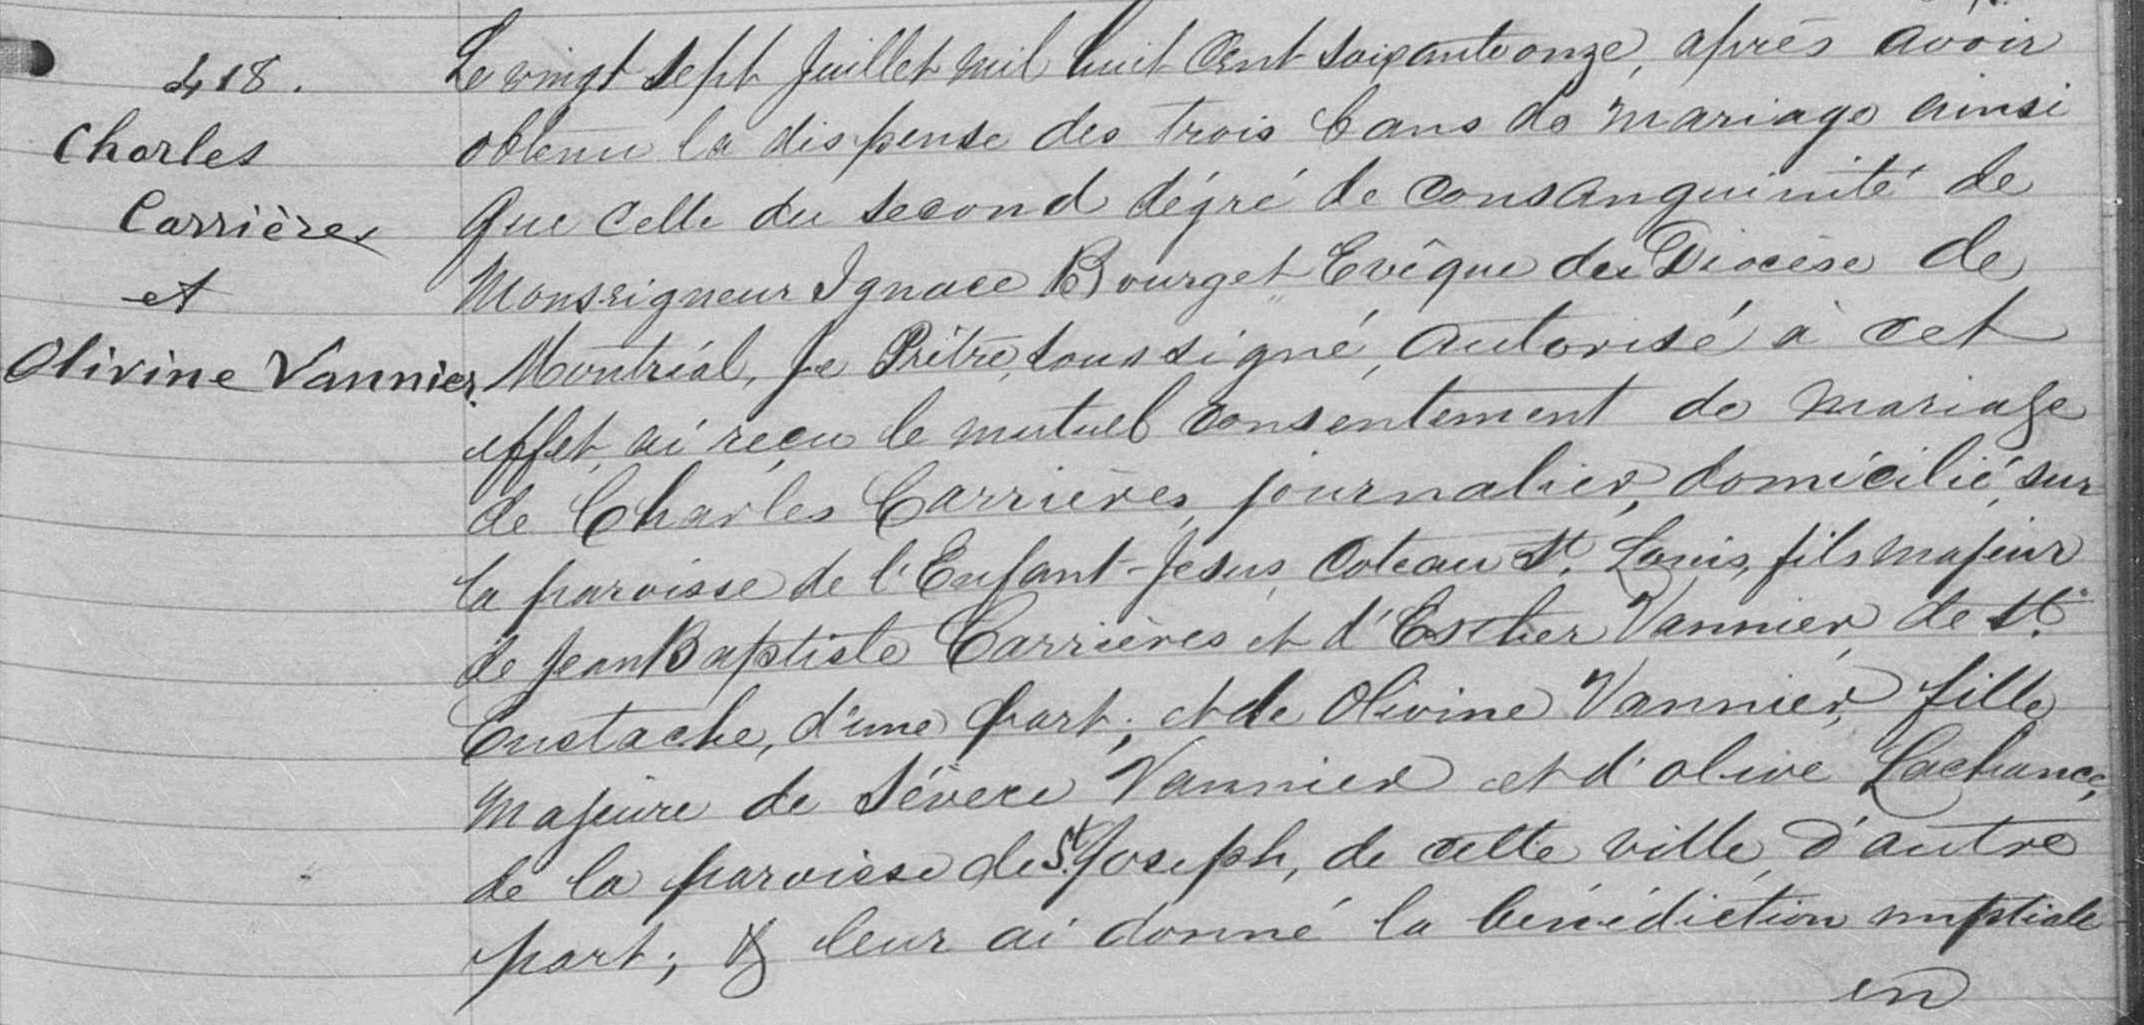 418.
Charles
Carrières
et
Olivine Vannier.
Le vingt sept Juillet mil huit cent soixante onze, après avoir
obtenu la dispense des trois bans de mariage ainsi
que celle du second dégré de consanguinité de
Monseigneur Ignace Bourget Evêque du Diocèse de
Montréal, Je Prêtre, soussigné, autorisé à cet
effet, ai reçu le mutuel consentement de mariage
de Charles Carrières, journalier, domicilié, sur
la paroisse de l'Enfant-Jesus, Coteau St. Louis, fils majeur
de Jean Baptiste Carrières et d'Esther Vannier, de St.
Eustache, d'une part; et de Olivine Vannier, fille
majeure de Sévère Vannier et d'olive Lachance,
de la paroisse de St. Joseph, de cette ville, d'autre
part; & leur ai donné la bénédiction nuptiale
en